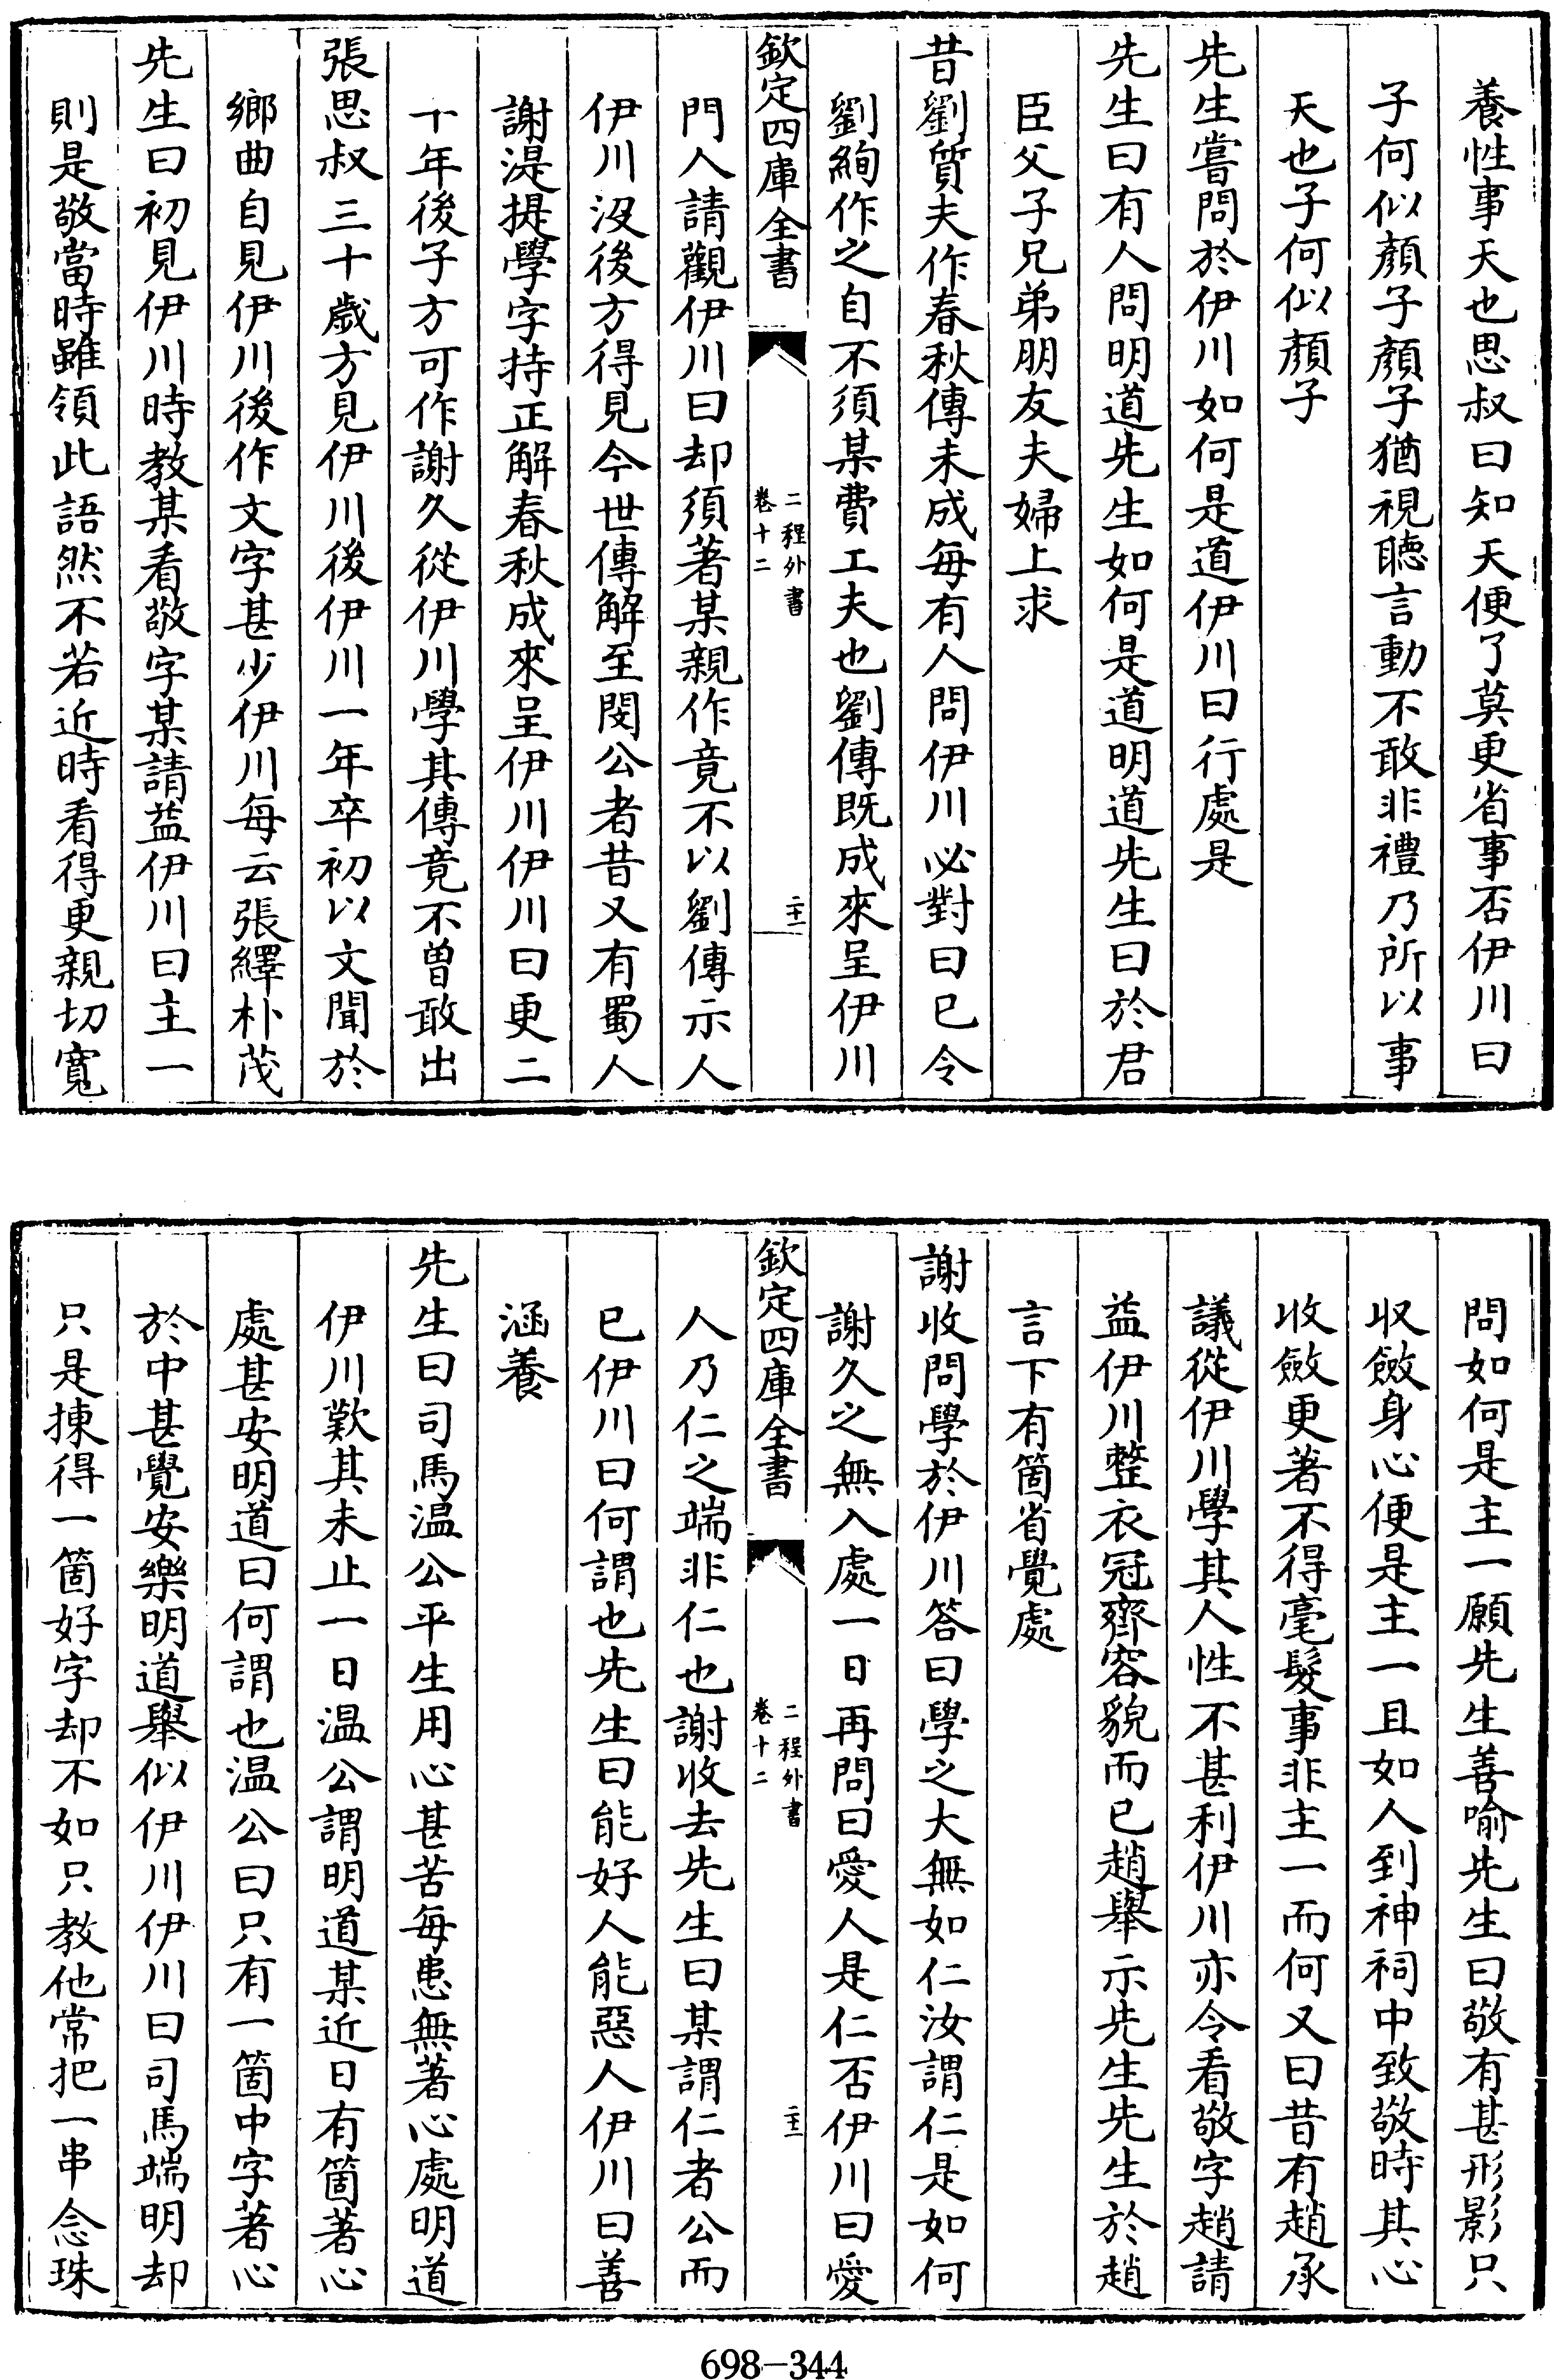 養性事天也思叔曰知天便了莫更省事否伊川曰
子何似顔子顔子猶視聽言動不敢非禮乃所以事
天也子何似顔子
先生嘗問於伊川如何是道伊川曰行處是
先生曰有人問明道先生如何是道明道先生曰於君
臣父子兄弟朋友夫婦上求
昔劉質夫作春秋傳未成每有人問伊川必對曰已令
劉絢作之自不須某費工夫也劉傳既成來呈伊川
欽定四庫全書
二程外書
卷十二
二十一
門人請觀伊川曰却須著某親作竟不以劉傳示人
伊川沒後方得見今世傳解至閔公者昔又有蜀人
謝湜提學字持正解春秋成來呈伊川伊川曰更二
十年後子方可作謝久從伊川學其傳竟不曾敢出
張思叔三十歲方見伊川後伊川一年卒初以文聞於
鄉曲自見伊川後作文字甚少伊川每云張繹朴茂
先生曰初見伊川時教某看敬字某請益伊川曰主一
則是敬當時雖領此語然不若近時看得更親切寬
問如何是主一願先生善喻先生曰敬有甚形影只
収斂身心便是主一且如人到神祠中致敬時其心
收斂更著不得毫髮事非主一而何又曰昔有趙承
議從伊川學其人性不甚利伊川亦令看敬字趙請
益伊川整衣冠齊容貌而已趙舉示先生先生於趙
言下有箇省覺處
謝收問學於伊川答曰學之大無如仁汝謂仁是如何
謝久之無入處一日再問曰愛人是仁否伊川曰愛
欽定四庫全書
二程外書
卷十二
二十二
人乃仁之端非仁也謝收去先生曰某謂仁者公而
已伊川曰何謂也先生曰能好人能惡人伊川曰善
涵養
先生曰司馬温公平生用心甚苦每患無著心處明道
伊川歎其未止一日温公謂明道某近日有箇著心
處甚安明道曰何謂也温公曰只有一箇中字著心
於中甚覺安樂明道舉似伊川伊川曰司馬端明却
只是揀得一箇好字却不如只教他常把一串念珠
698-344